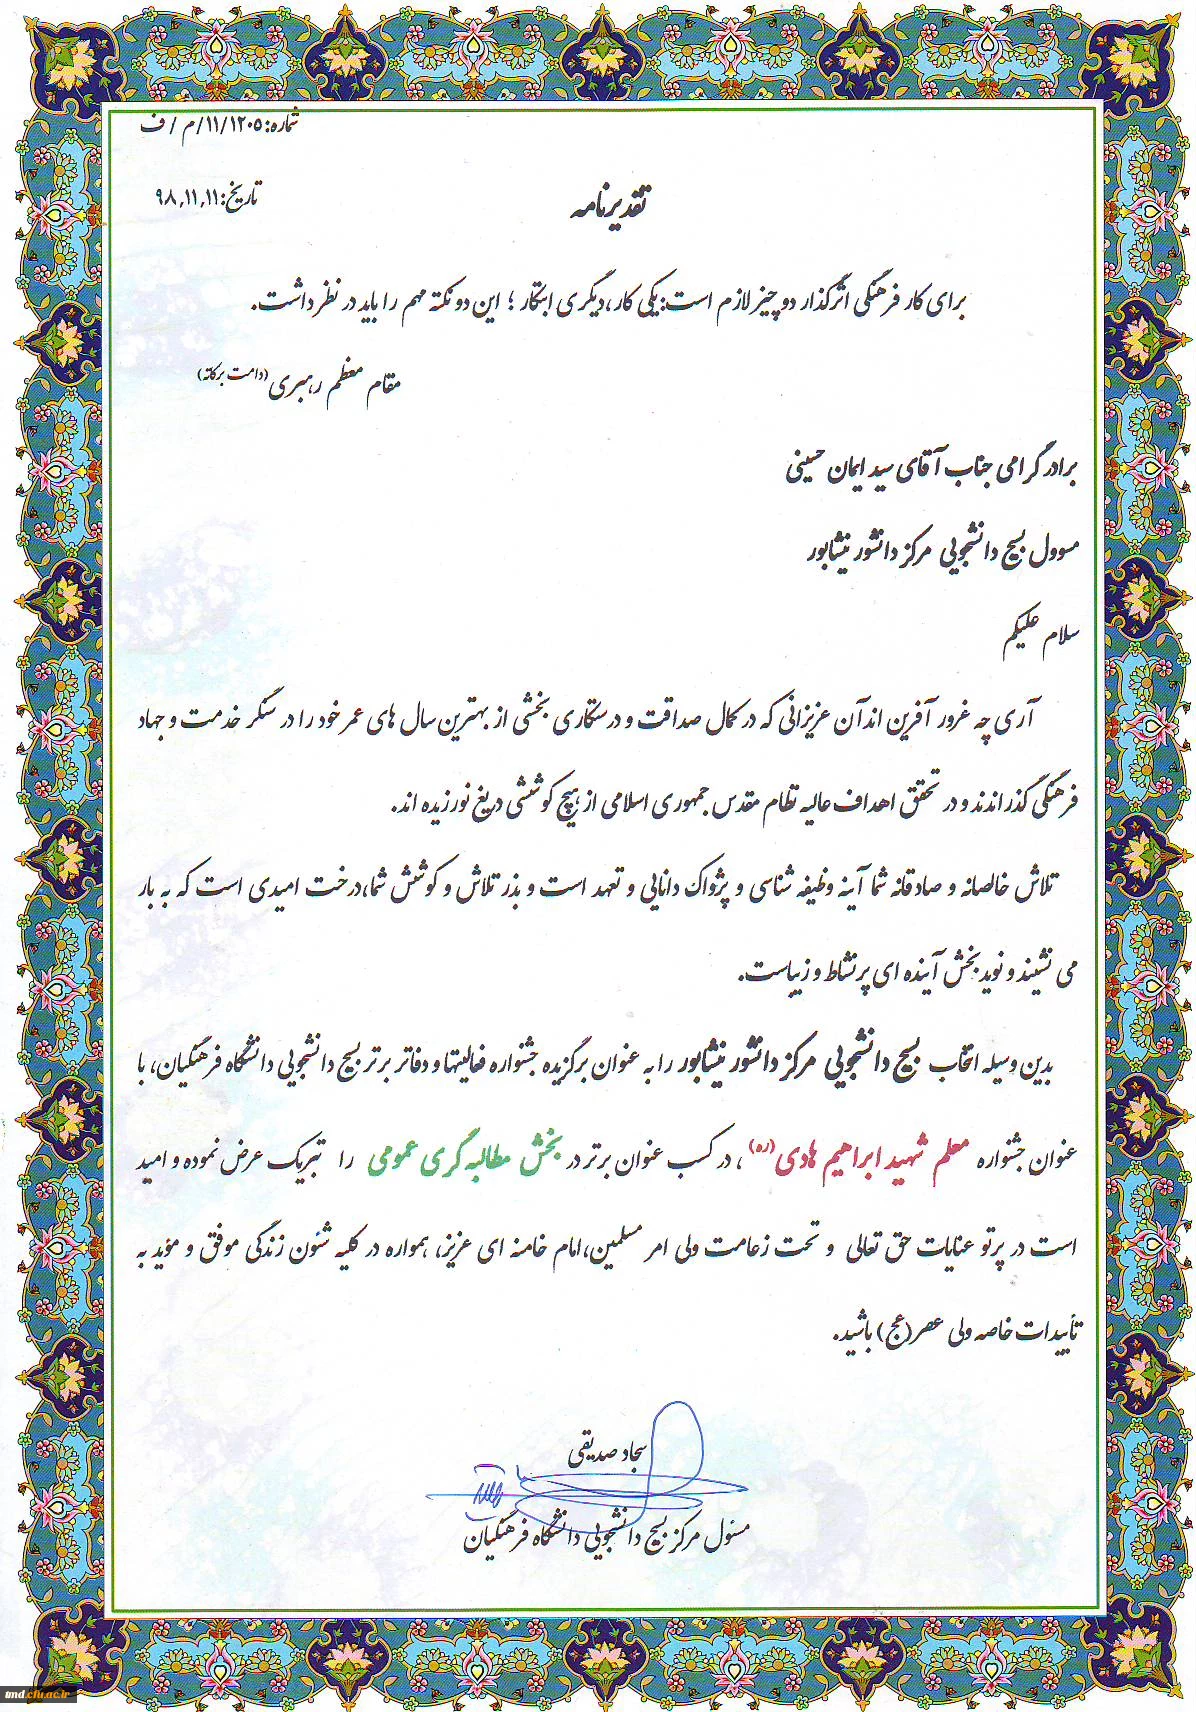 شماره: ۱۱/۱۲۰۵/م/ف
تاریخ: ۹۸,۱۱,۱۱
تقدیرنامه
برای کار فرهنگی اثرگذار دو چیز لازم است: یکی کار، دیگری ابتکار ؛ این دو نکته مهم را باید در نظر داشت.
مقام معظم رهبری (دامت برکاته)
برادر گرامی جناب آقای سید ایمان حسینی
مسوول بسیج دانشجویی مرکز دانشور نیشابور
سلام علیکم
آری چه غرور آفرین اند آن عزیزانی که در کمال صداقت و درستکاری بخشی از بهترین سال های عمر خود را در سنگر خدمت و جهاد
فرهنگی گذراندند و در تحقق اهداف عالیه نظام مقدس جمهوری اسلامی از هیچ کوششی دریغ نورزیده اند.
تلاش خالصانه و صادقانه شما آینه وظیفه شناسی و پژواک دانایی و تعهد است و بذر تلاش و کوشش شما، درخت امیدی است که به بار
می نشیند و نوید بخش آینده ای پر نشاط و زیباست.
بدین وسیله انتخاب بسیج دانشجویی مرکز دانشور نیشابور را به عنوان برگزیده جشنواره فعالیتها و دفاتر برتر بسیج دانشجویی دانشگاه فرهنگیان، با
عنوان جشنواره معلم شهید ابراهیم هادی (ره) ، در کسب عنوان برتر در بخش مطالبه گری عمومی را تبریک عرض نموده و امید
است در پرتو عنایات حق تعالی و تحت زعامت ولی امر مسلمین، امام خامنه ای عزیز، همواره در کلیه شئون زندگی موفق و مؤید به
تأییدات خاصه ولی عصر (عج) باشید.
سجاد صدیقی
مسئول مرکز بسیج دانشجویی دانشگاه فرهنگیان
und.cfu.ac.ir